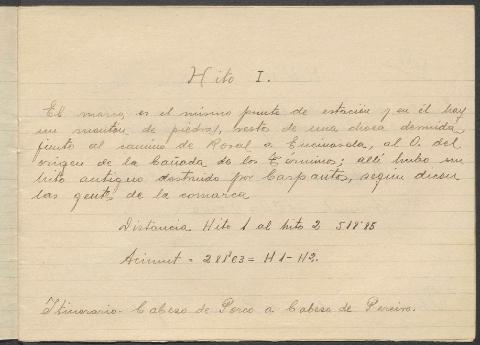 Hito I.
El marco, es el mismo punto de estación y en él hay
un montón de piedras, resto de una choza derruida,
junto al camino de Rosal a Encinasola, al O. del
origen de la Cañada de los Términos; allí hubo un
hito antiguo destruido por Carpanta, según dicen
las gentes de la comarca
Distancia Hito 1 al hito 2 518'85
Acimut = 281°03 = H1-H2.
Itinerario- Cabeso de Porco a Cabeso de Pereiro.